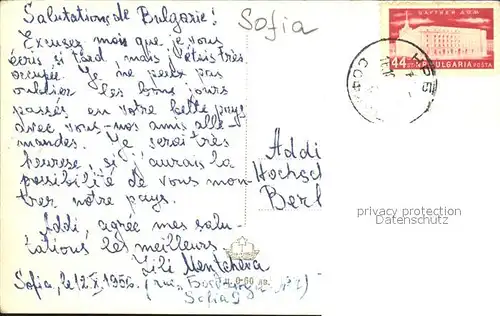 Salutations de Bulgarie!
Excusez mois que je vous
écris si tard, mais j'étais très
occupée. Je ne peux pas
oublier les bons jours
passés en votre belle pays
avec vous-nos amis alle-
mandes. Je serai très
heurese, si j'aurais la
possibilité de vous mon-
trer notre pays.
Addi, agrée mes salu-
tations les meilleurs
Lili Mentcheva
Sofia, le 12.X.1956.
Sofia
Sofia
44 ст. BULGARIA POSTA
Addi
Hochsch
Berl
privacy protection
Datenschutz